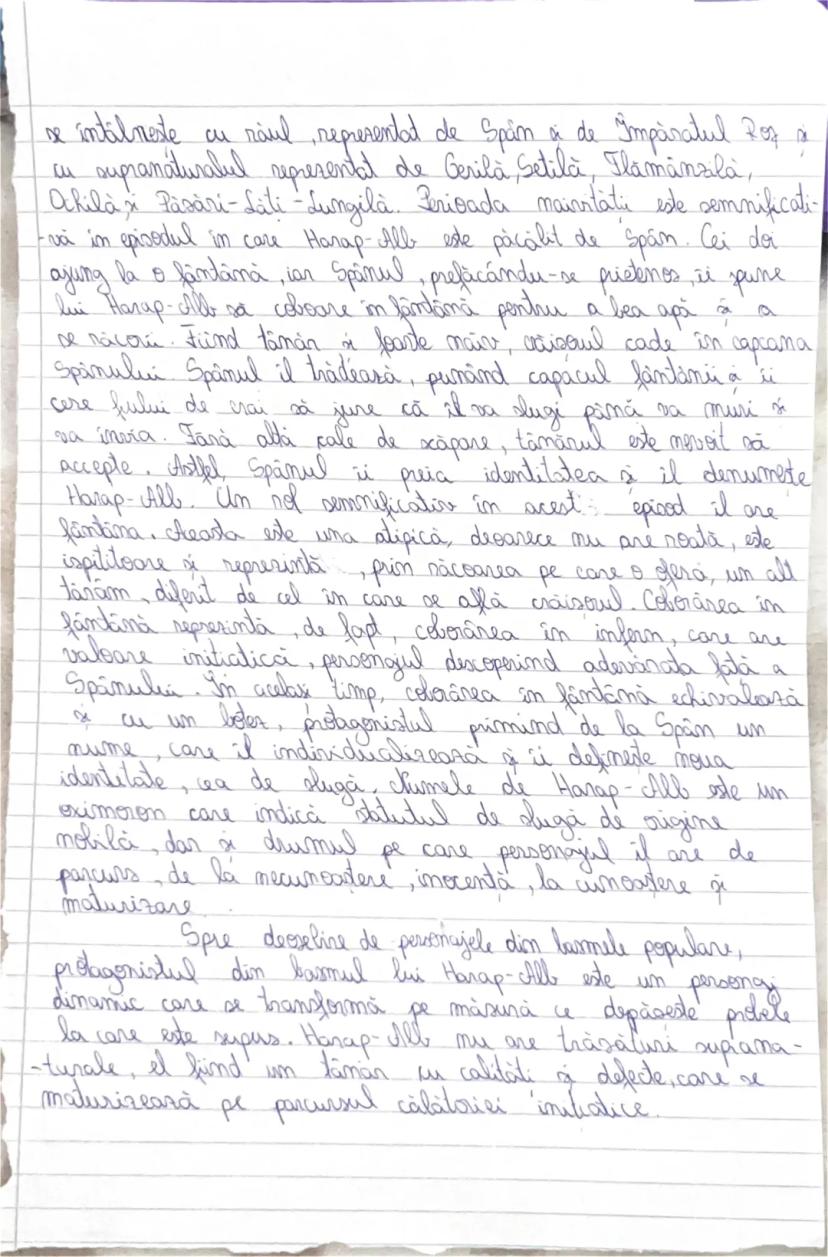 se întâlnește cu răul, reprezentat de Spân și de Împăratul Roș și
cu supranaturalul reprezentat de Gerilă, Setilă, Flămânzilă,
Ochilă și Păsări-Lăți-Lungilă. Perioada naivității este semnificati-
-vă în episodul în care Harap-Alb este păcălit de Spân. Cei doi
ajung la o fântână, iar Spânul, prefăcându-se prietenos, îi spune
lui Harap-Alb să coboare în fântână pentru a bea apă și a
se răcori. Fiind tânăr și foarte naiv, crăișorul cade în capcana
Spânului. Spânul îl trădează, punând capacul fântânii și îi
cere fiului de crai să jure că îl va slugi până va muri și
va învia. Fără altă cale de scăpare, tânărul este nevoit să
accepte. Astfel, Spânul îi preia identitatea și îl denumește
Harap-Alb. Un rol semnificativ în acest episod îl are
fântâna. Aceasta este una atipică, deoarece nu are roată, este
ispititoare și reprezintă, prin răcoarea pe care o oferă, un alt
tărâm, diferit de cel în care se află crăișorul. Coborârea în
fântână reprezintă, de fapt, coborârea în infern, care are
valoare inițiatică, personajul descoperind adevărata față a
Spânului. În același timp, coborârea în fântână echivalează
și cu un botez, protagonistul primind de la Spân un
nume, care îl individualizează și îi definește noua
identitate, cea de slugă. Numele de Harap-Alb este un
oximoron care indică statutul de slugă de origine
nobilă, dar și drumul pe care personajul îl are de
parcurs, de la necunoaștere, inocență, la cunoaștere și
maturizare.
Spre deosebire de personajele din basmele populare,
protagonistul din basmul lui Harap-Alb este un personaj
dinamic care se transformă pe măsură ce depășește probele
la care este supus. Harap-Alb nu are trăsături suprana-
-turale, el fiind un tânăr cu calități și defecte, care se
maturizează pe parcursul călătoriei inițiatice.